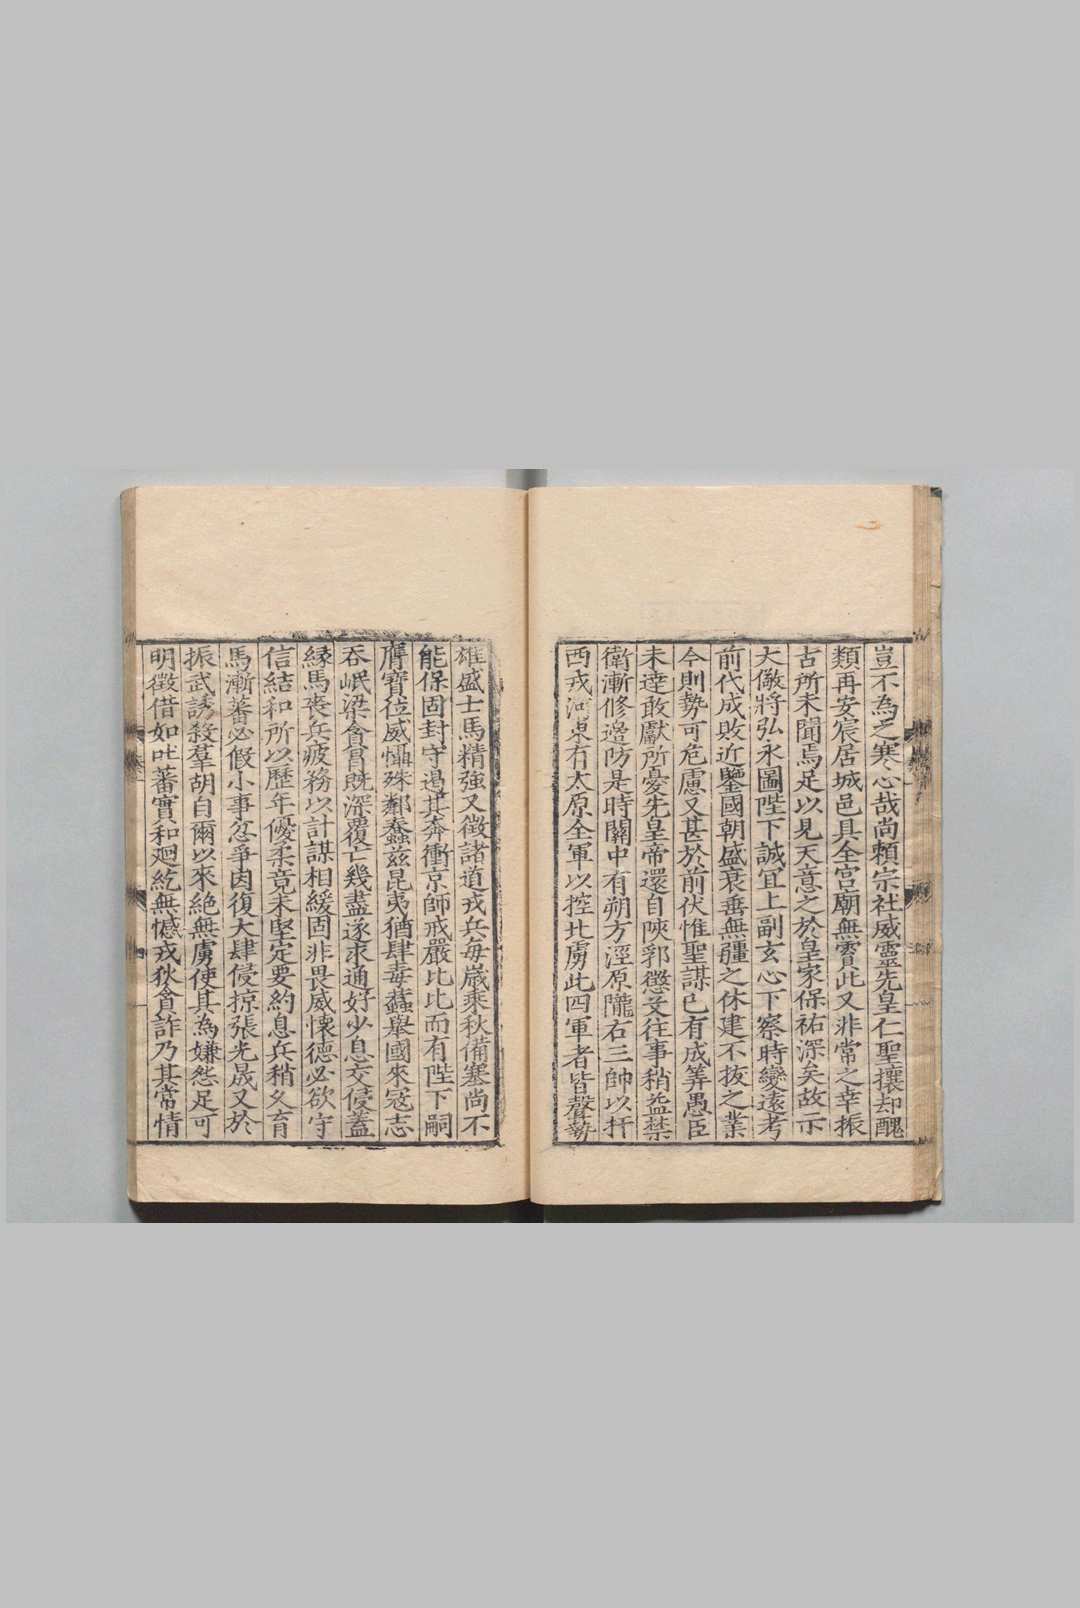 豈不為之寒心哉尚頼宗社威靈先皇仁聖攘却醜
類再安宸居城邑具全宮廟無霣此又非常之幸振
古所未聞焉足以見天意之於皇家保祐深矣故示
大儆將弘永圖陛下誠冝上副玄心下察時變遠考
前代成敗近鑒國朝盛衰垂無疆之休建不拔之業
今則勢可危慮又甚於前伏惟聖謀已有成筭愚臣
未達敢獻所憂先皇帝還自陝郛懲艾往事稍益禁
衛漸修邊防是時關中有朔方涇原隴右三帥以扞
西戎河東有太原全軍以控北虜此四軍者皆聲勢
雄盛士馬精強又徵諸道戎兵每歲乘秋備塞尚不
能保固封守遏其奔衝京師戒嚴比比而有陛下嗣
膺寶位威懾殊鄰蠢茲昆夷猶肆毒蠚舉國來寇志
吞岷梁貪冒既深覆亡幾盡遂求通好少息交侵蓋
緣馬喪兵疲務以計謀相緩固非畏威懷德必欲守
信結和所以歷年優柔竟未堅定要約息兵稍久育
馬漸蕃必假小事忿爭因復大肆侵掠張光晟又於
振武誘殺羣胡自爾以來絕無虜使其為嫌怨足可
明徵借如吐蕃實和廻紇無憾戎狄貪詐乃其常情